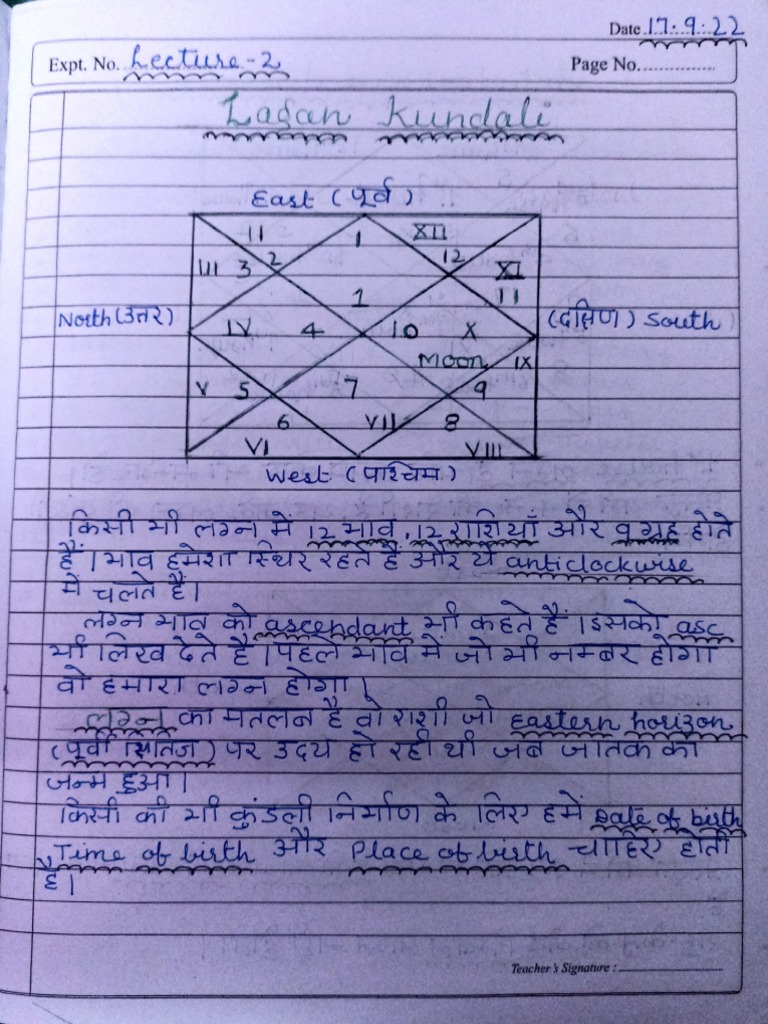 Date 17.9.22
Expt. No. Lecture-2 Page No.
Lagan Kundali
East (पूर्व)
II 1 XII
III 3 2 12 XI
1 11
North (उत्तर) IV 4 10 X (दक्षिण) South
Moon IX
V 5 7 9
6 VII 8
VI VIII
West (पश्चिम)
किसी भी लग्न में 12 भाव, 12 राशियाँ और 9 ग्रह होते
हैं। भाव हमेशा स्थिर रहते हैं और ये anticlockwise
में चलते हैं।
लग्न भाव को ascendant भी कहते हैं। इसको asc
भी लिख देते हैं। पहले भाव में जो भी नम्बर होगा
वो हमारा लग्न होगा।
लग्न का मतलब है वो राशी जो eastern horizon
(पूर्वी क्षितिज) पर उदय हो रही थी जब जातक का
जन्म हुआ।
किसी की भी कुंडली निर्माण के लिए हमें Date of birth
Time of birth और Place of birth चाहिए होती
है।
Teacher's Signature :